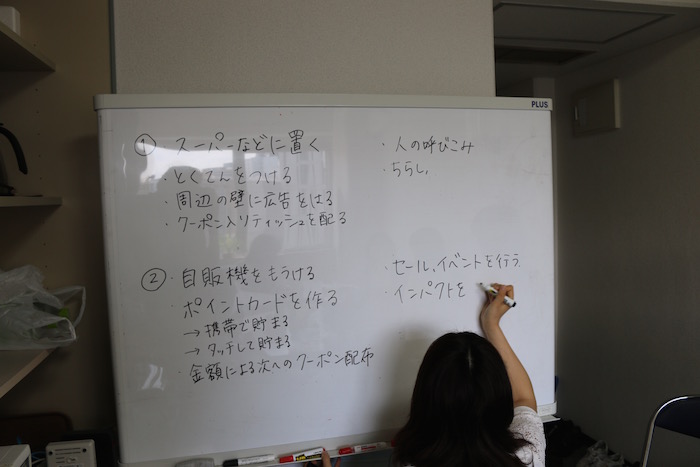 PLUS
① スーパーなどに置く
・とくてんをつける
・周辺の壁に広告をはる
・クーポン入りティッシュを配る
・人の呼びこみ
・ちらし、
②・自販機をもうける
・ポイントカードを作る
→携帯で貯まる
→タッチして貯まる
・金額による次へのクーポン配布
・セール、イベントを行う
・インパクトを